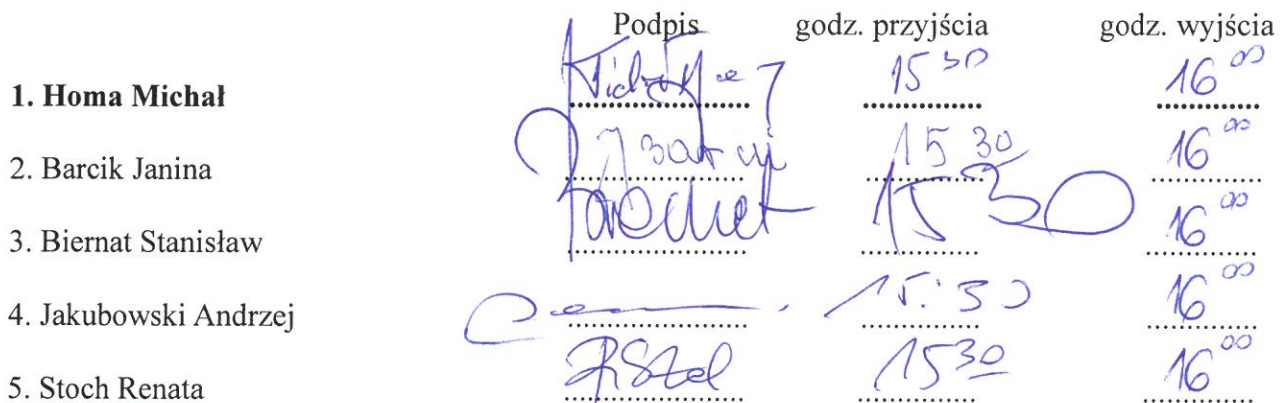 Podpis godz. przyjścia godz. wyjścia
1. Homa Michał 15 30 16 00
2. Barcik Janina 15 30 16 00
3. Biernat Stanisław 15 30 16 00
4. Jakubowski Andrzej 15:30 16 00
5. Stoch Renata 15 30 16 00